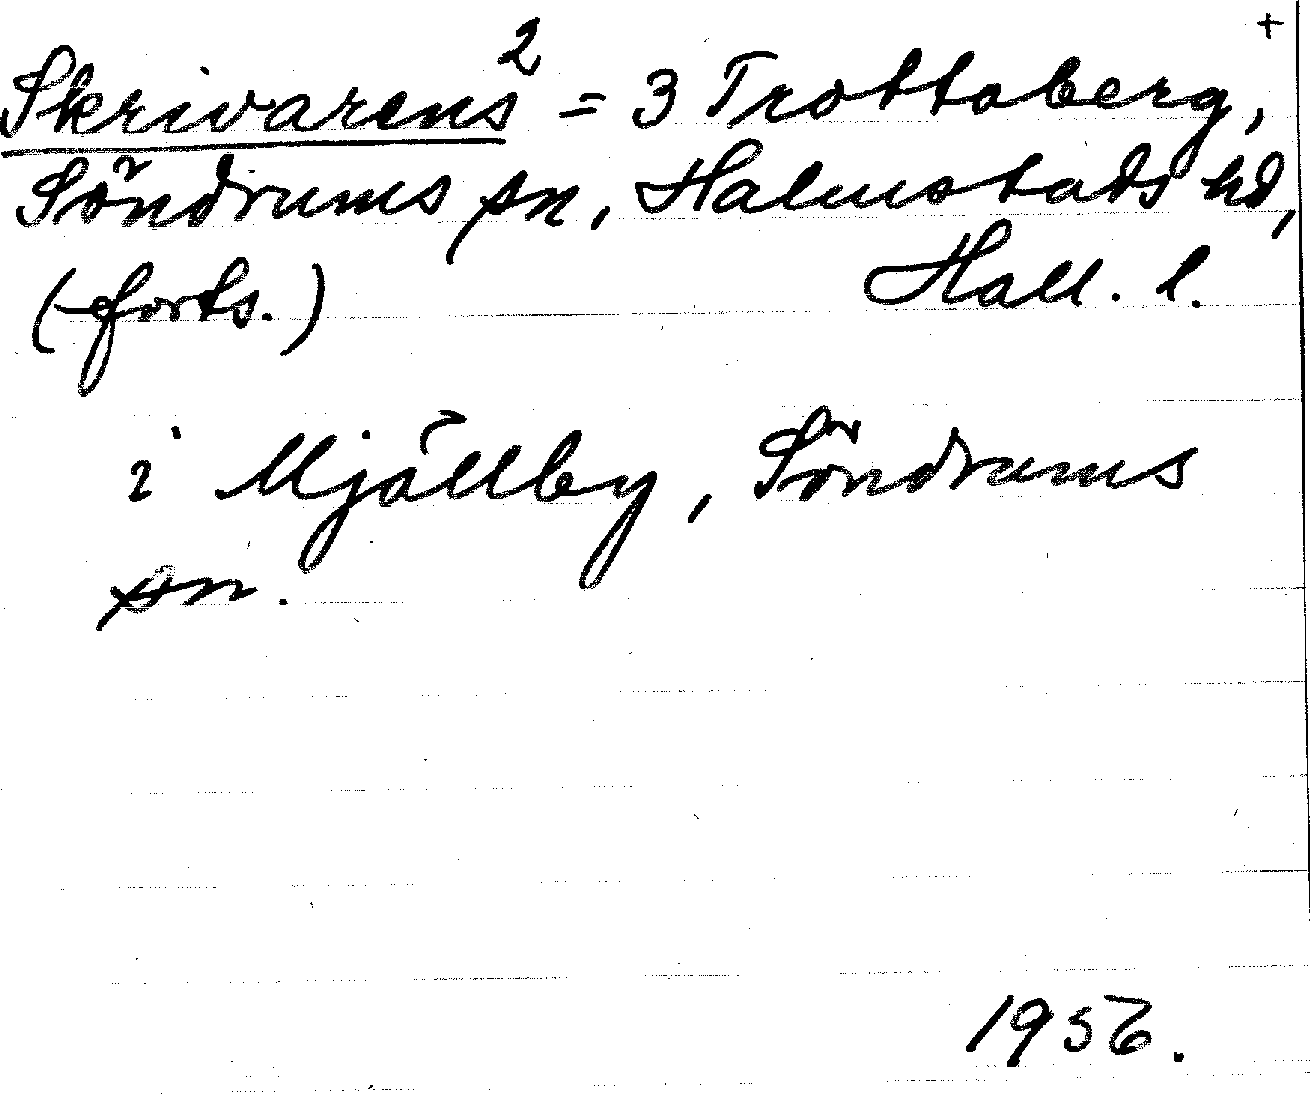 +
Skrivarens² = 3 Trottaberg,
Söndrums sn, Halmstads hd,
(forts.) Hall. l.
i Mjällby, Söndrums
sn.
1956.